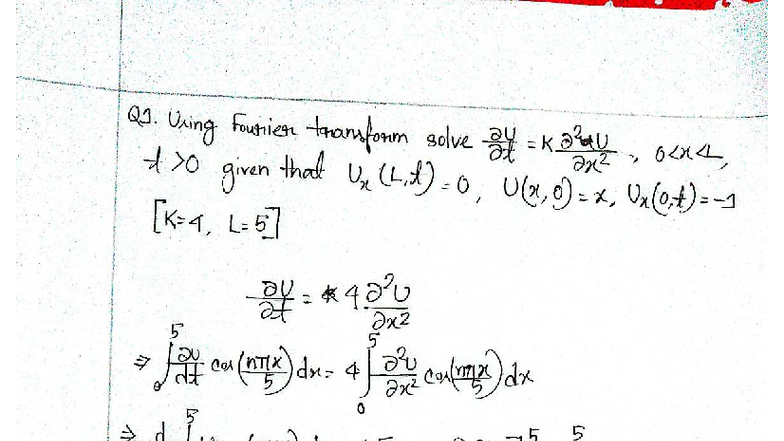 Q1. Using Fourier transform solve ∂U/∂t = K ∂²U/∂x², 0<x<L,
t>0 given that Uₓ(L,t)=0, U(x,0)=x, Uₓ(0,t)=-1
[K=4, L=5]
∂U/∂t = 4 ∂²U/∂x²
⇒ ∫₀⁵ ∂U/dt cos(nπx/5) dx = 4 ∫₀⁵ ∂²U/∂x² cos(nπx/5) dx